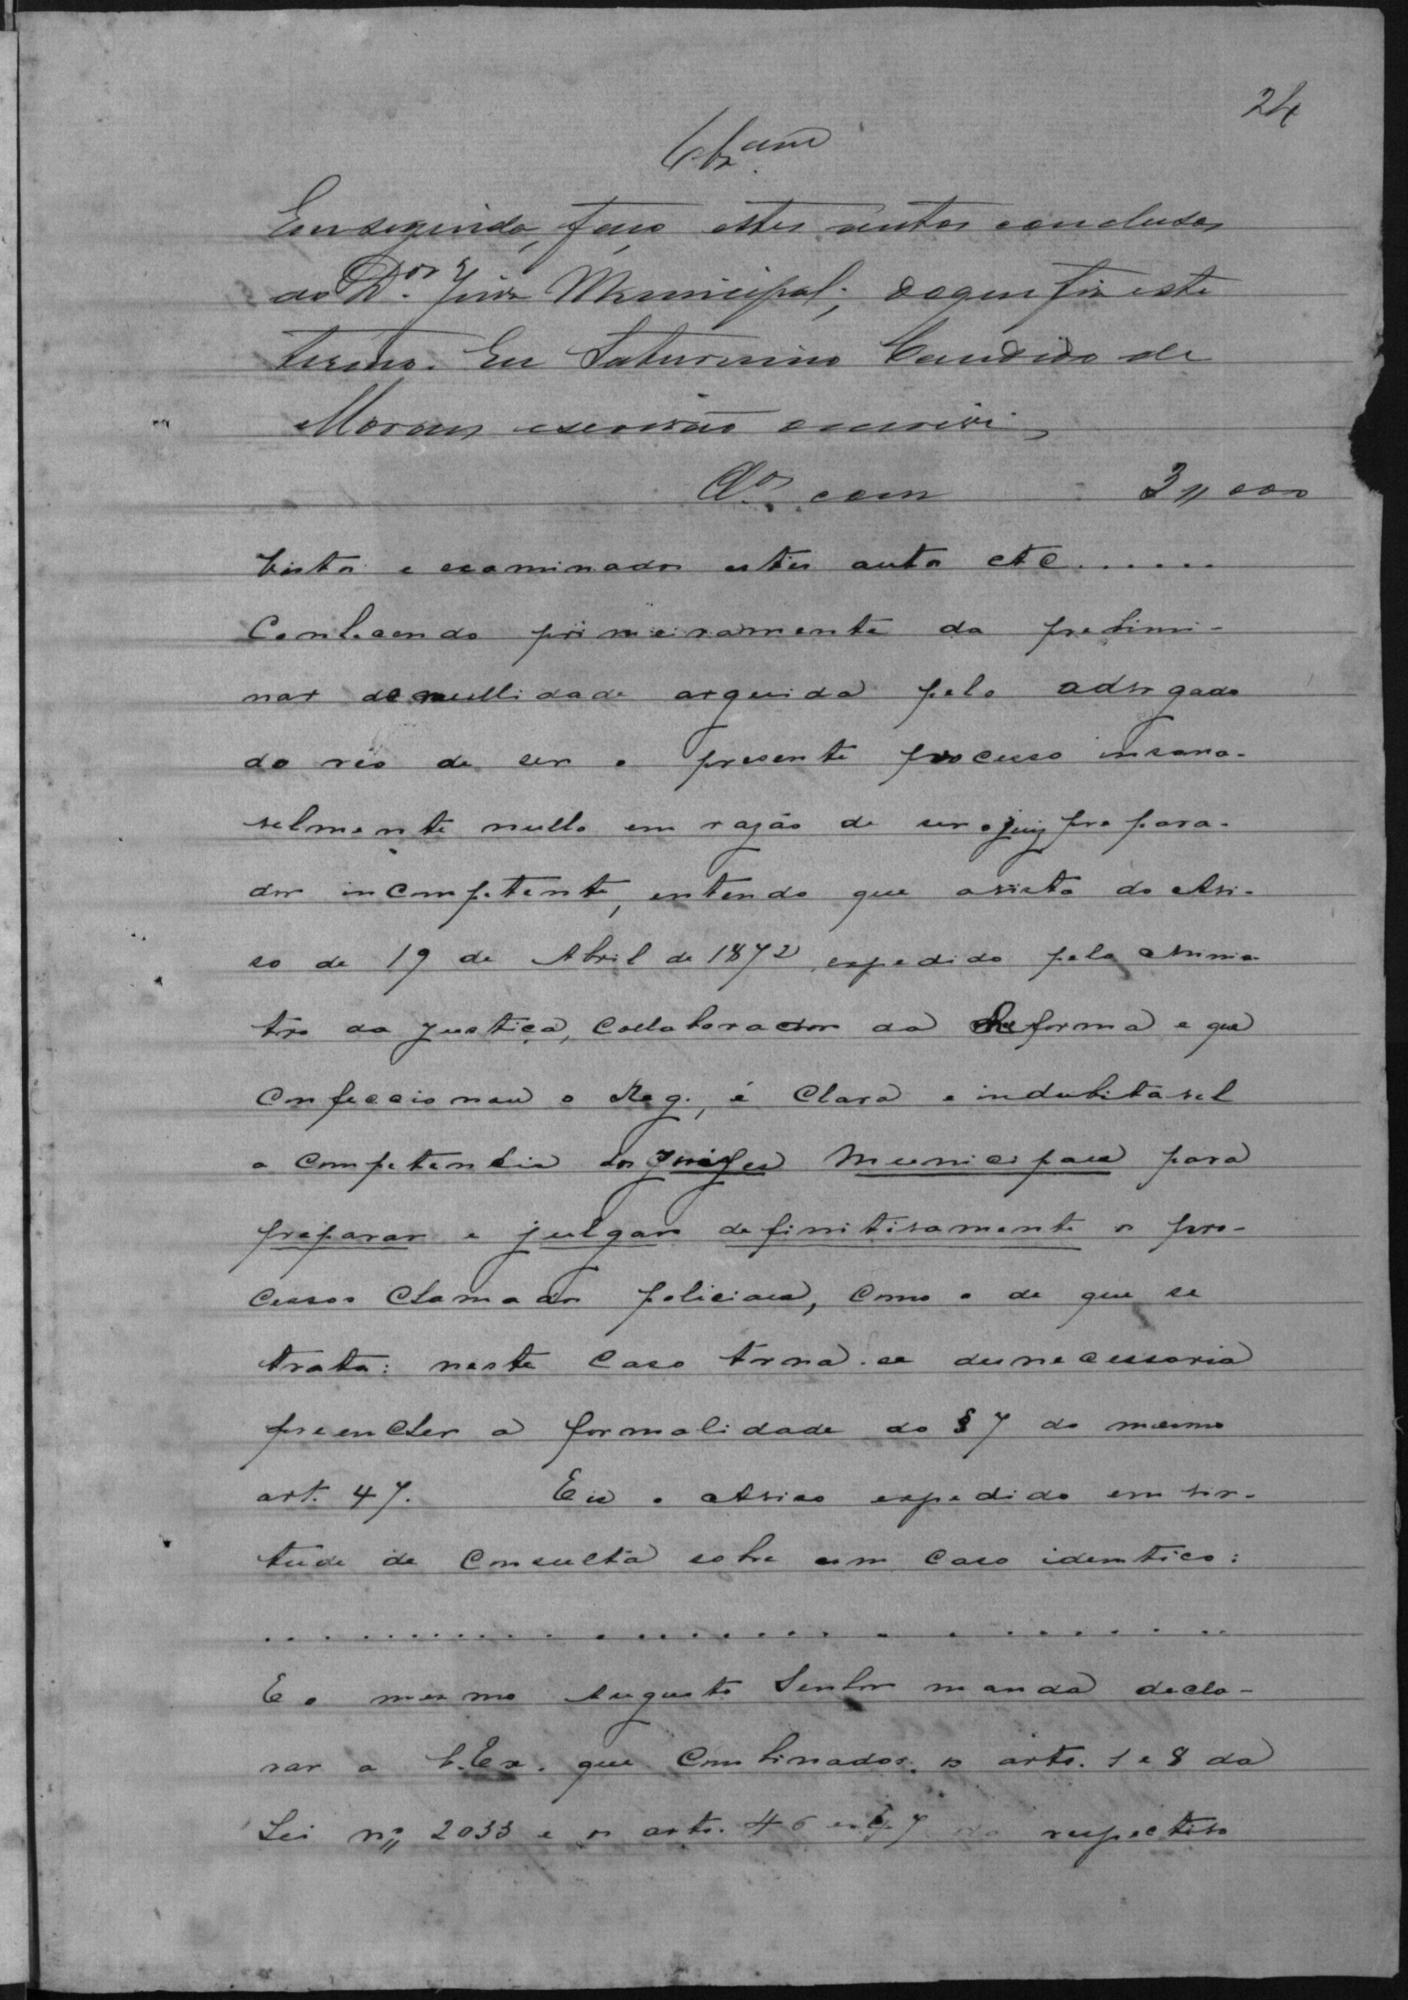 24
Clzam
Em seguida, faço estes autos conclusos
ao Dor Juiz Municipal; do que fiz este
termo. Eu Saturnino Candido de
Moraes escrivão o escrevi
Clos com 3,,000
Vistos e examinados estes autos etc......
Conhecendo primeiramente da prelimi-
nar de nullidade arguida pelo advogado
do réo de ser o presente processo insana-
velmente nullo em razão de ser o juiz prepara-
dor incompetente, entendo que a vista do Avi-
so de 19 de Abril de 1872 expedido pelo Minis-
tro da Justiça, collaborador da Reforma e que
confeccionou o Reg., é clara e indubitavel
a competencia dos Juizes Municipaes para
preparar e julgar definitivamente os pro-
cessos chamados policiaes, como o de que se
trata: neste caso torna-se desnecessaria
preencher a formalidade do § 7 do mesmo
art. 47. Eis o Aviso expedido em vir-
tude de consulta sobre um caso identico:
..........................
E o mesmo Augusto Senhor manda decla-
rar a V. Ex. que combinados os arts. 1 e 8 da
Lei n,, 2033 e os arts. 46 e 47 do respectivo